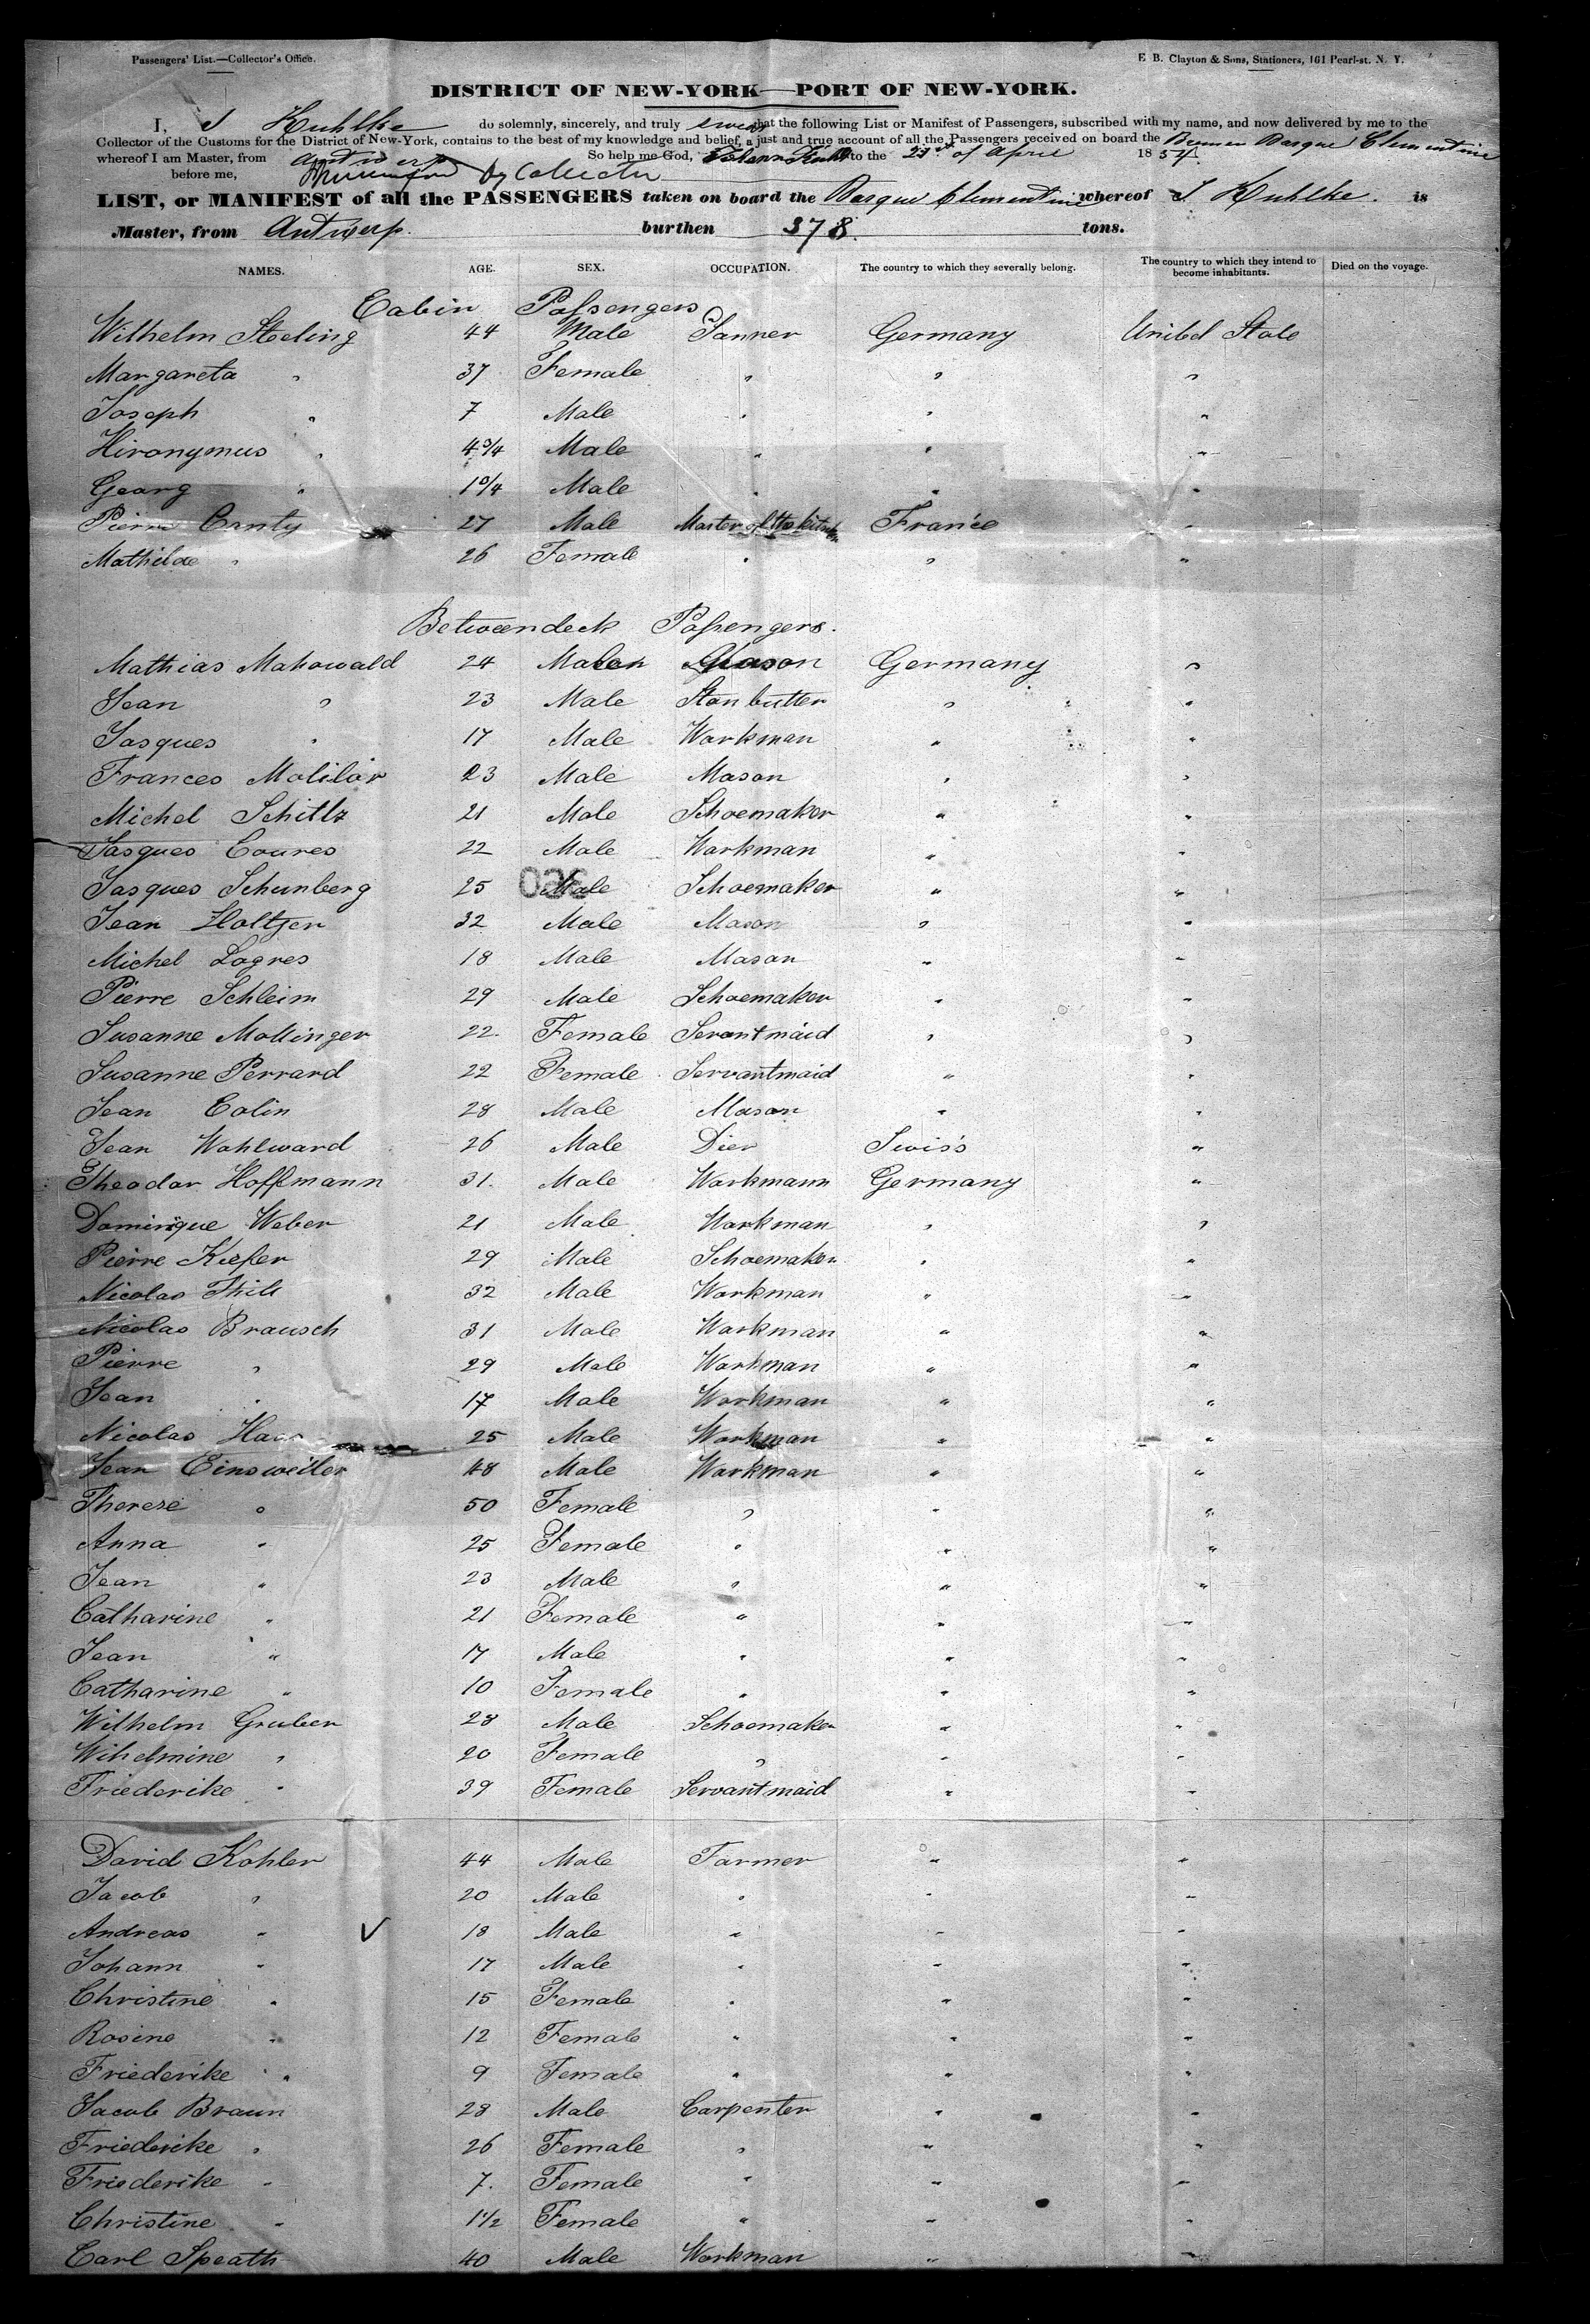 Passengers' List.—Collector's Office.
E. B. Clayton & Sons, Stationers, 161 Pearl-st. N. Y.
DISTRICT OF NEW-YORK—PORT OF NEW-YORK.
I, J Kuhlke do solemnly, sincerely, and truly swear that the following List or Manifest of Passengers, subscribed with my name, and now delivered by me to the
Collector of the Customs for the District of New-York, contains to the best of my knowledge and belief, a just and true account of all the Passengers received on board the Bremen Barque Clementine
whereof I am Master, from Antwerp So help me God, to the 23 of April 1854
before me, Dy Collector
LIST, or MANIFEST of all the PASSENGERS taken on board the Barque Clementine whereof J Kuhlke. is
Master, from Antwerp. burthen 378. tons.
NAMES. AGE. SEX. OCCUPATION. The country to which they severally belong. The country to which they intend to become inhabitants. Died on the voyage.
Cabin Passengers
Wilhelm Steling 44 Male Tanner Germany United State
Margareta " 37 Female " " "
Joseph " 7 Male " " "
Hironymus " 4 3/4 Male " " "
Georg " 1 3/4 Male " " "
Pierre Canty 27 Male Master of the kitchen France "
Mathilde " 26 Female " " "
Betweendeck Passengers.
Mathias Mahowald 24 Male Mason Germany "
Jean " 23 Male Stonbutter " "
Jasques " 17 Male Workman " "
Frances Molilor 23 Male Mason " "
Michel Schiltz 21 Male Schoemaker " "
Jasques Coures 22 Male Workman " "
Jasques Schunberg 25 Male Schoemaker " "
Jean Holtzer 32 Male Mason " "
Michel Lagres 18 Male Mason " "
Pierre Schleim 29 Male Schoemaker " "
Susanne Mollinger 22 Female Servantmaid " "
Susanne Perrard 22 Female Servantmaid " "
Jean Colin 28 Male Mason " "
Jean Wahlward 26 Male Dier Swiss "
Theodor Hoffmann 31. Male Workmann Germany "
Dominique Weber 21 Male Workman " "
Pierre Kiefer 29 Male Schoemaker " "
Nicolas Thill 32 Male Workman " "
Nicolas Brausch 31 Male Workman " "
Pierre " 29 Male Workman " "
Jean " 17 Male Workman " "
Nicolas Haas 25 Male Workman " "
Jean Einsweiler 48 Male Workman " "
Therese " 50 Female " " "
Anna " 25 Female " " "
Jean " 23 Male " " "
Catharine " 21 Female " " "
Jean " 17 Male " " "
Catharine " 10 Female " " "
Wilhelm Gruber 28 Male Schoemaker " "
Wihelmine " 20 Female " " "
Friederike " 39 Female Servantmaid " "
David Kohler 44 Male Farmer " "
Jacob " 20 Male " " "
Andreas " V 18 Male " " "
Johann " 17 Male " " "
Christine " 15 Female " " "
Rosine " 12 Female " " "
Friederike " 9 Female " " "
Jacob Braun 28 Male Carpenter " "
Friederike " 26 Female " " "
Friederike " 7. Female " " "
Christine " 1 1/2 Female " " "
Carl Speath 40 Male Workman " "